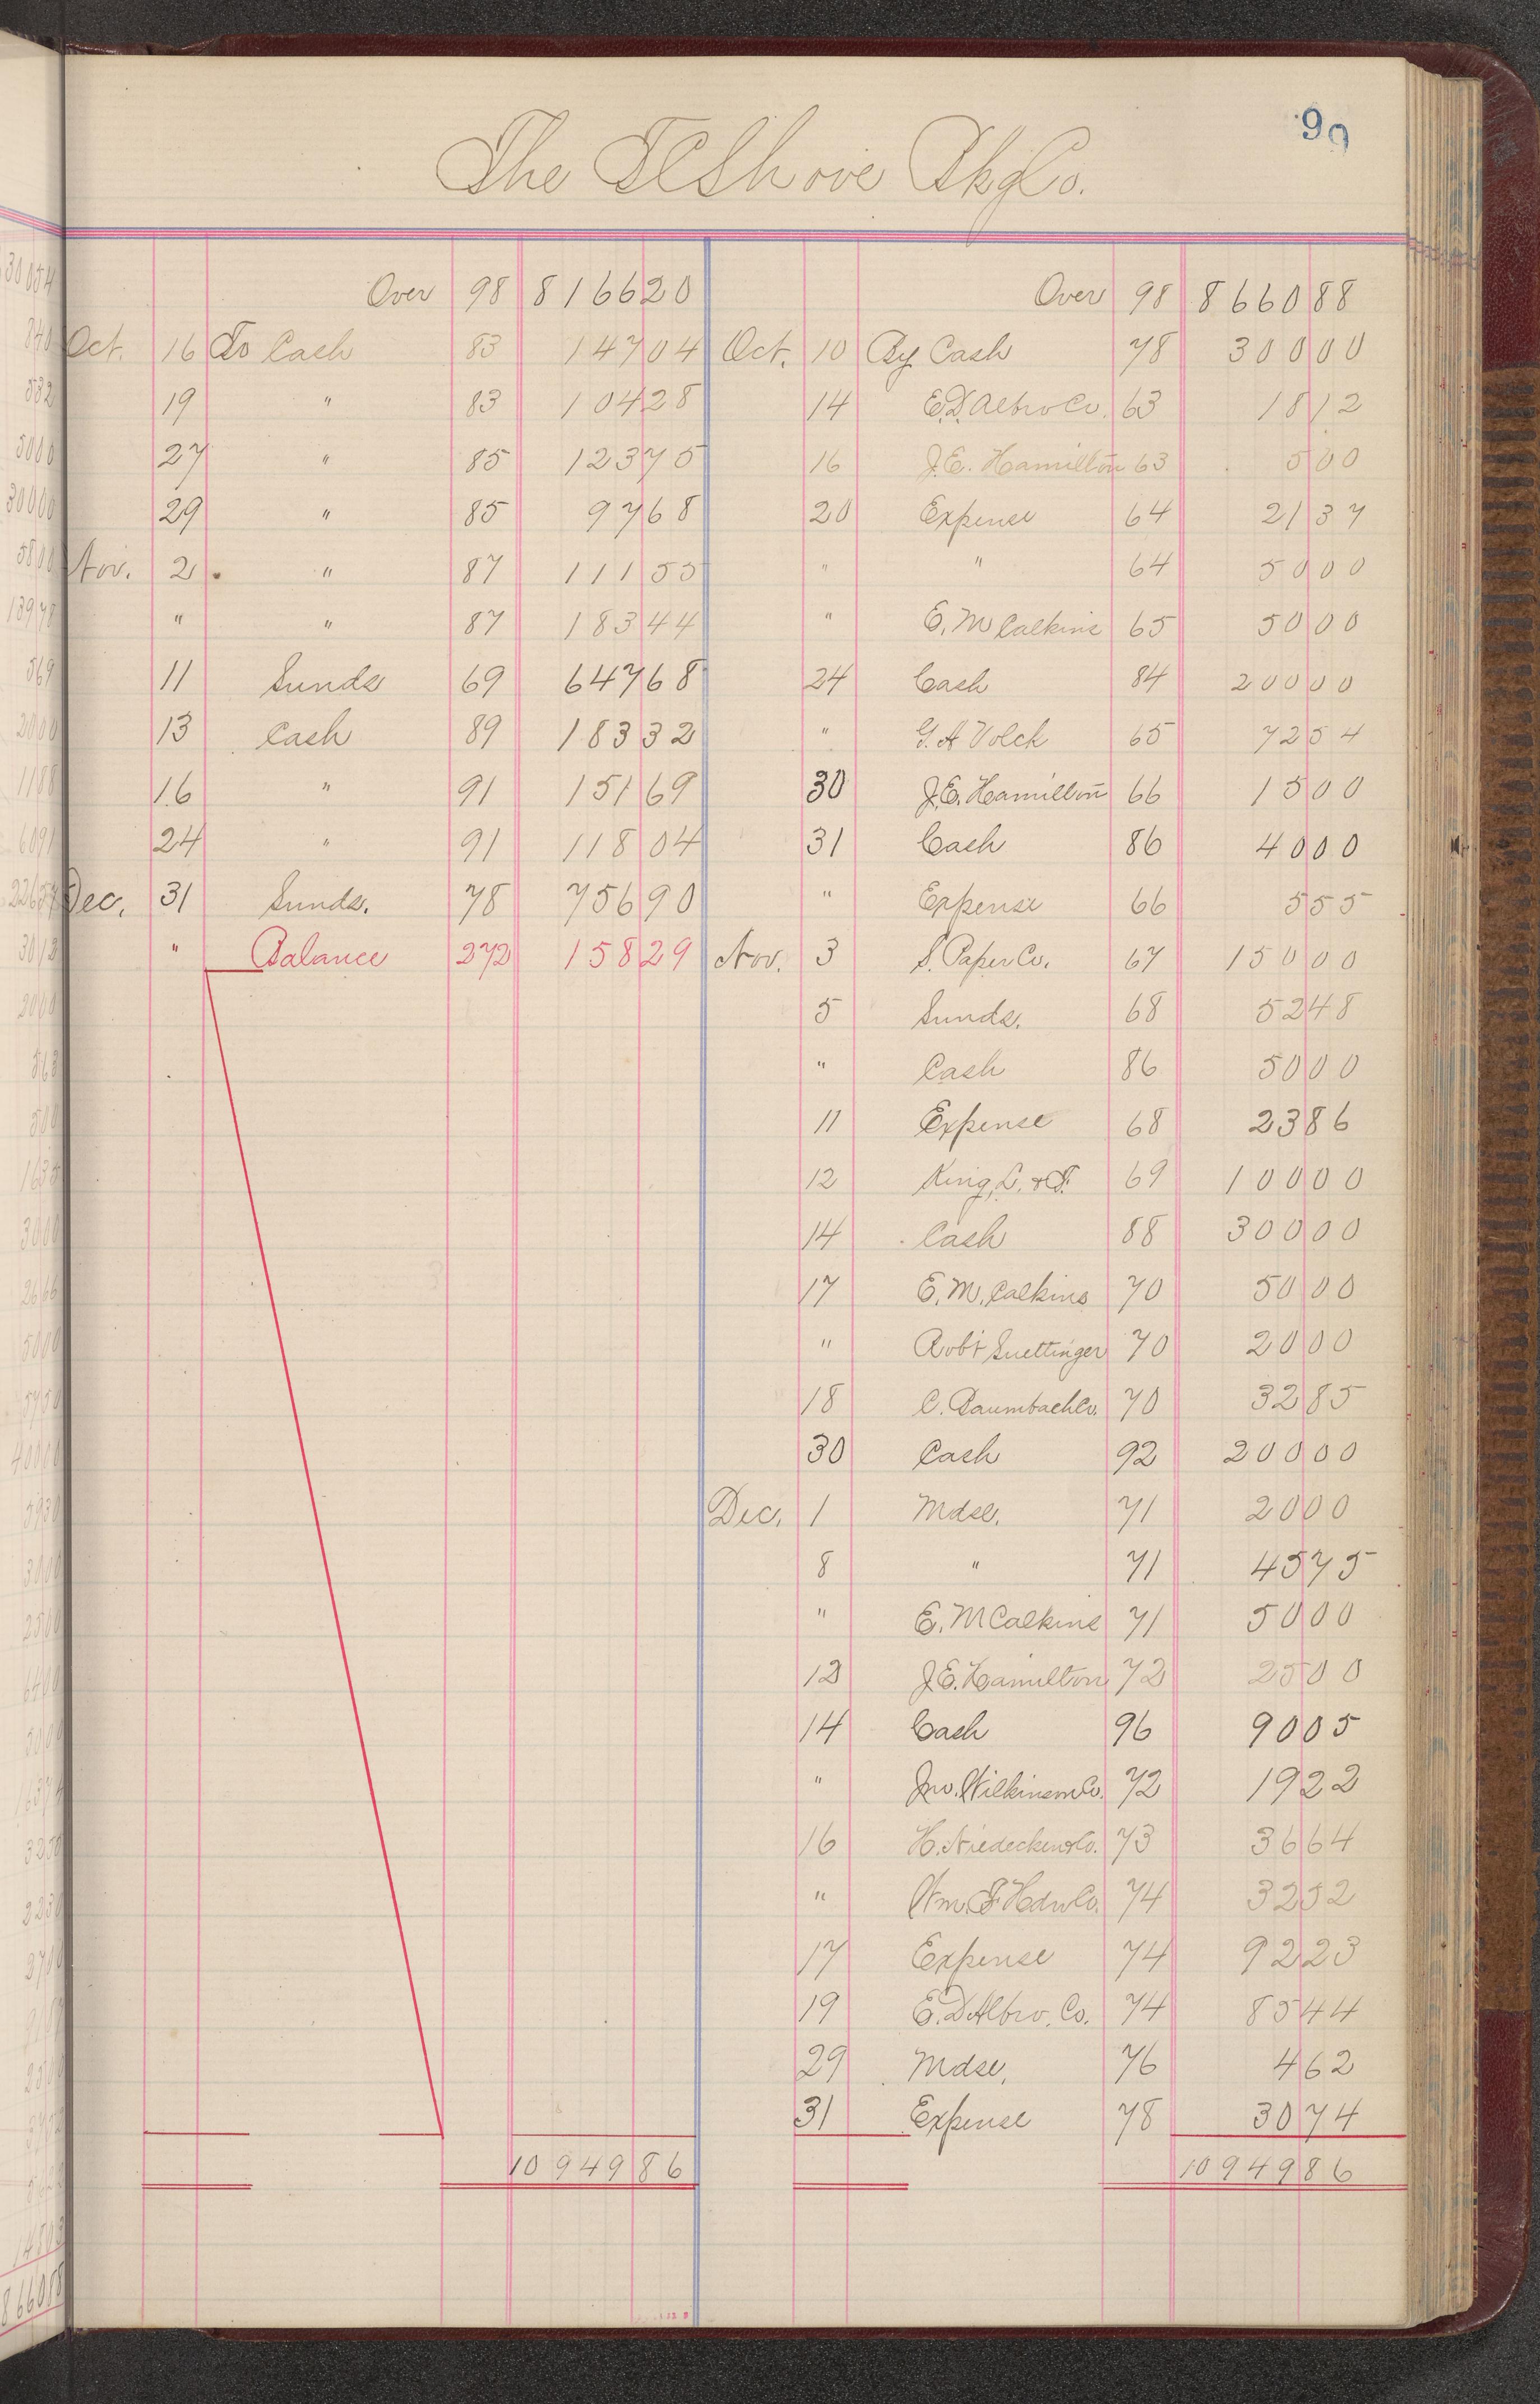 99
The T C Shove Bkg Co.
Over 98 8166 20
Oct. 16 To Cash 83 147 04
19 " 83 104 28
27 " 85 123 75
29 " 85 97 68
Nov. 2 " 87 111 55
" " 87 183 44
11 Sunds 69 647 68
13 Cash 89 183 32
16 " 91 151 69
24 " 91 118 04
Dec. 31 Sunds. 78 756 90
" Balance 272 158 29
10949 86
Over 98 8660 88
Oct. 10 By Cash 78 300 00
14 E.D. Albro Co. 63 18 12
16 J.E. Hamilton 63 5 00
20 Expense 64 21 37
" " 64 50 00
" E. M Calkins 65 50 00
24 Cash 84 200 00
" G. A Volck 65 72 54
30 J.E. Hamilton 66 15 00
31 Cash 86 40 00
" Expense 66 5 55
Nov. 3 S. Paper Co. 67 150 00
5 Sunds. 68 52 48
" Cash 86 50 00
11 Expense 68 23 86
12 King, L. & F. 69 100 00
14 Cash 88 300 00
17 E. M. Calkins 70 50 00
" Robt Suettinger 70 20 00
18 C. Baumbach Co. 70 32 85
30 Cash 92 200 00
Dec. 1 Mdse. 71 20 00
8 " 71 45 75
" E. M Calkins 71 50 00
12 J.E. Hamilton 72 25 00
14 Cash 96 90 05
" Jno. Wilkinson Co. 72 19 22
16 H. Niedecken & Co. 73 36 64
" Wm. F Hdw Co. 74 32 52
17 Expense 74 92 23
19 E. D Albro. Co. 74 85 44
29 Mdse. 76 4 62
31 Expense 78 30 74
10949 86